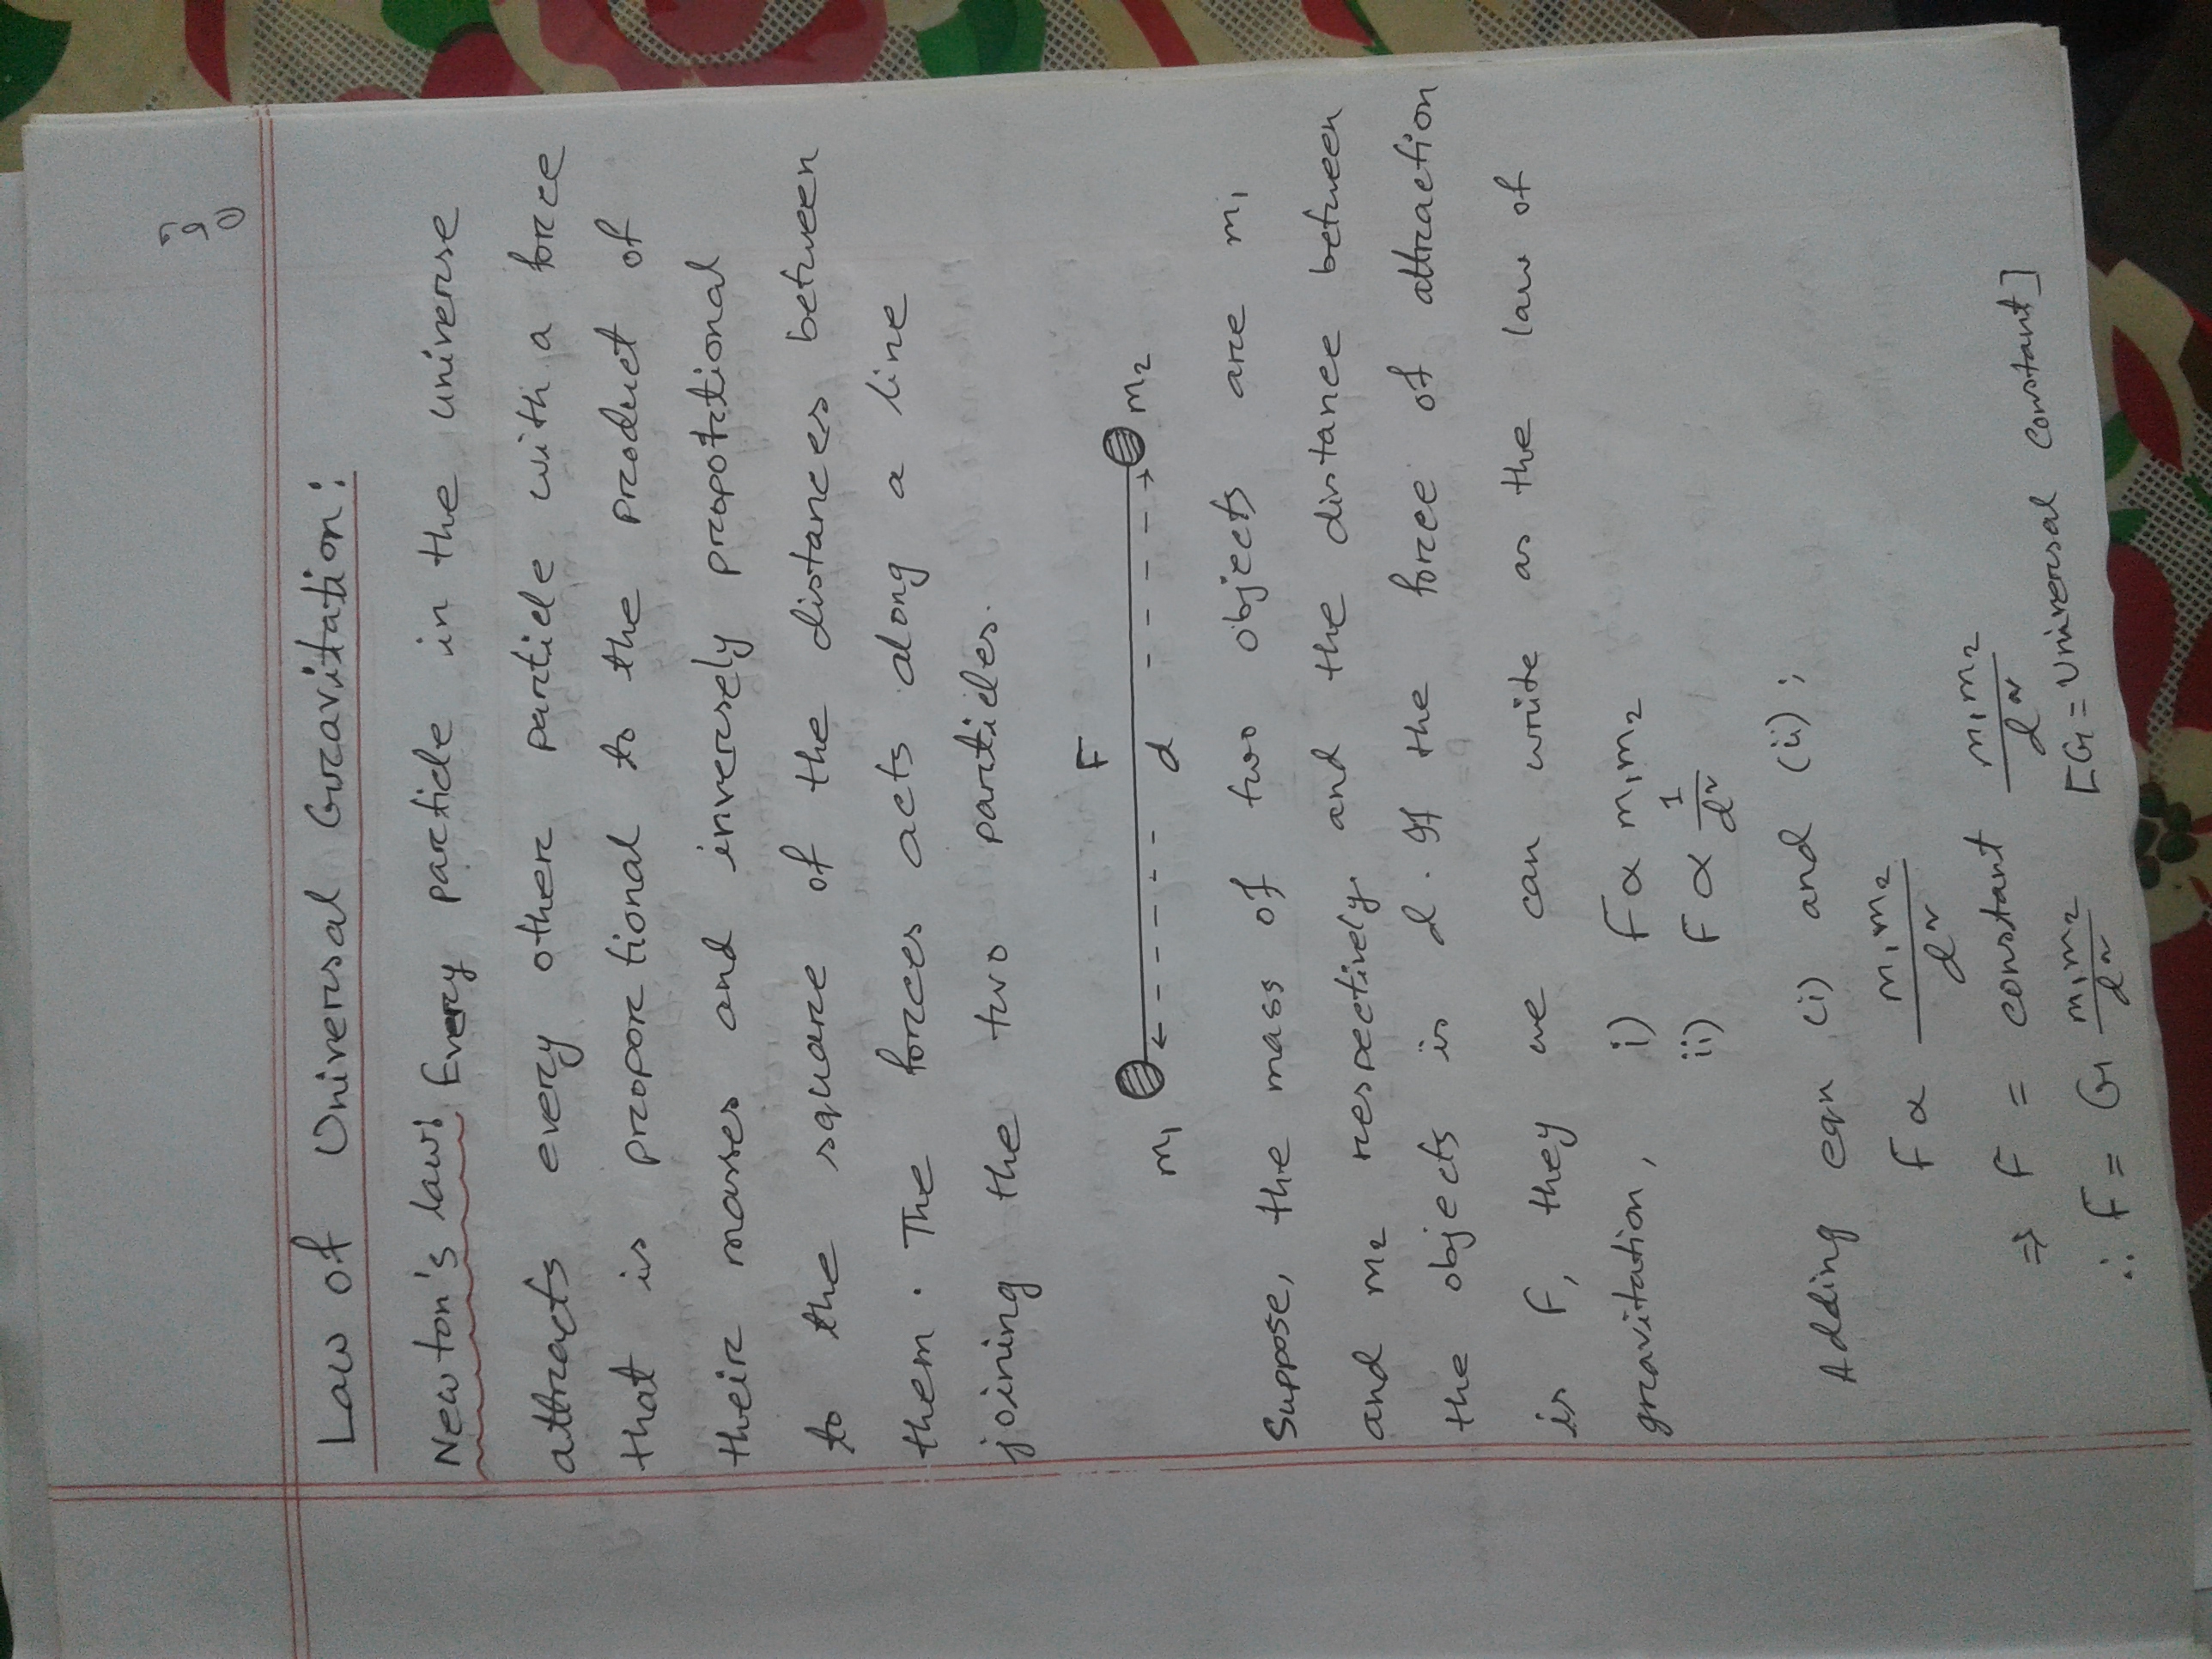 Law of Universal Gravitation:
Newton's law: Every particle in the universe
attracts every other particle with a force
that is proportional to the product of
their masses and inversely propotrtional
to the square of the distances between
them. The forces acts along a line
joining the two particles.
F
m₁ d m₂
Suppose, the mass of two objects are m₁
and m₂ respectively. and the distance between
the objects is d. If the force of attraction
is F, they we can write as the law of
gravitation, i) F ∝ m₁m₂
ii) F ∝ 1/d²
Adding eqn (i) and (ii);
F ∝ m₁m₂/d²
⇒ F = constant m₁m₂/d²
∴ F = G m₁m₂/d² [G = Universal Constant]